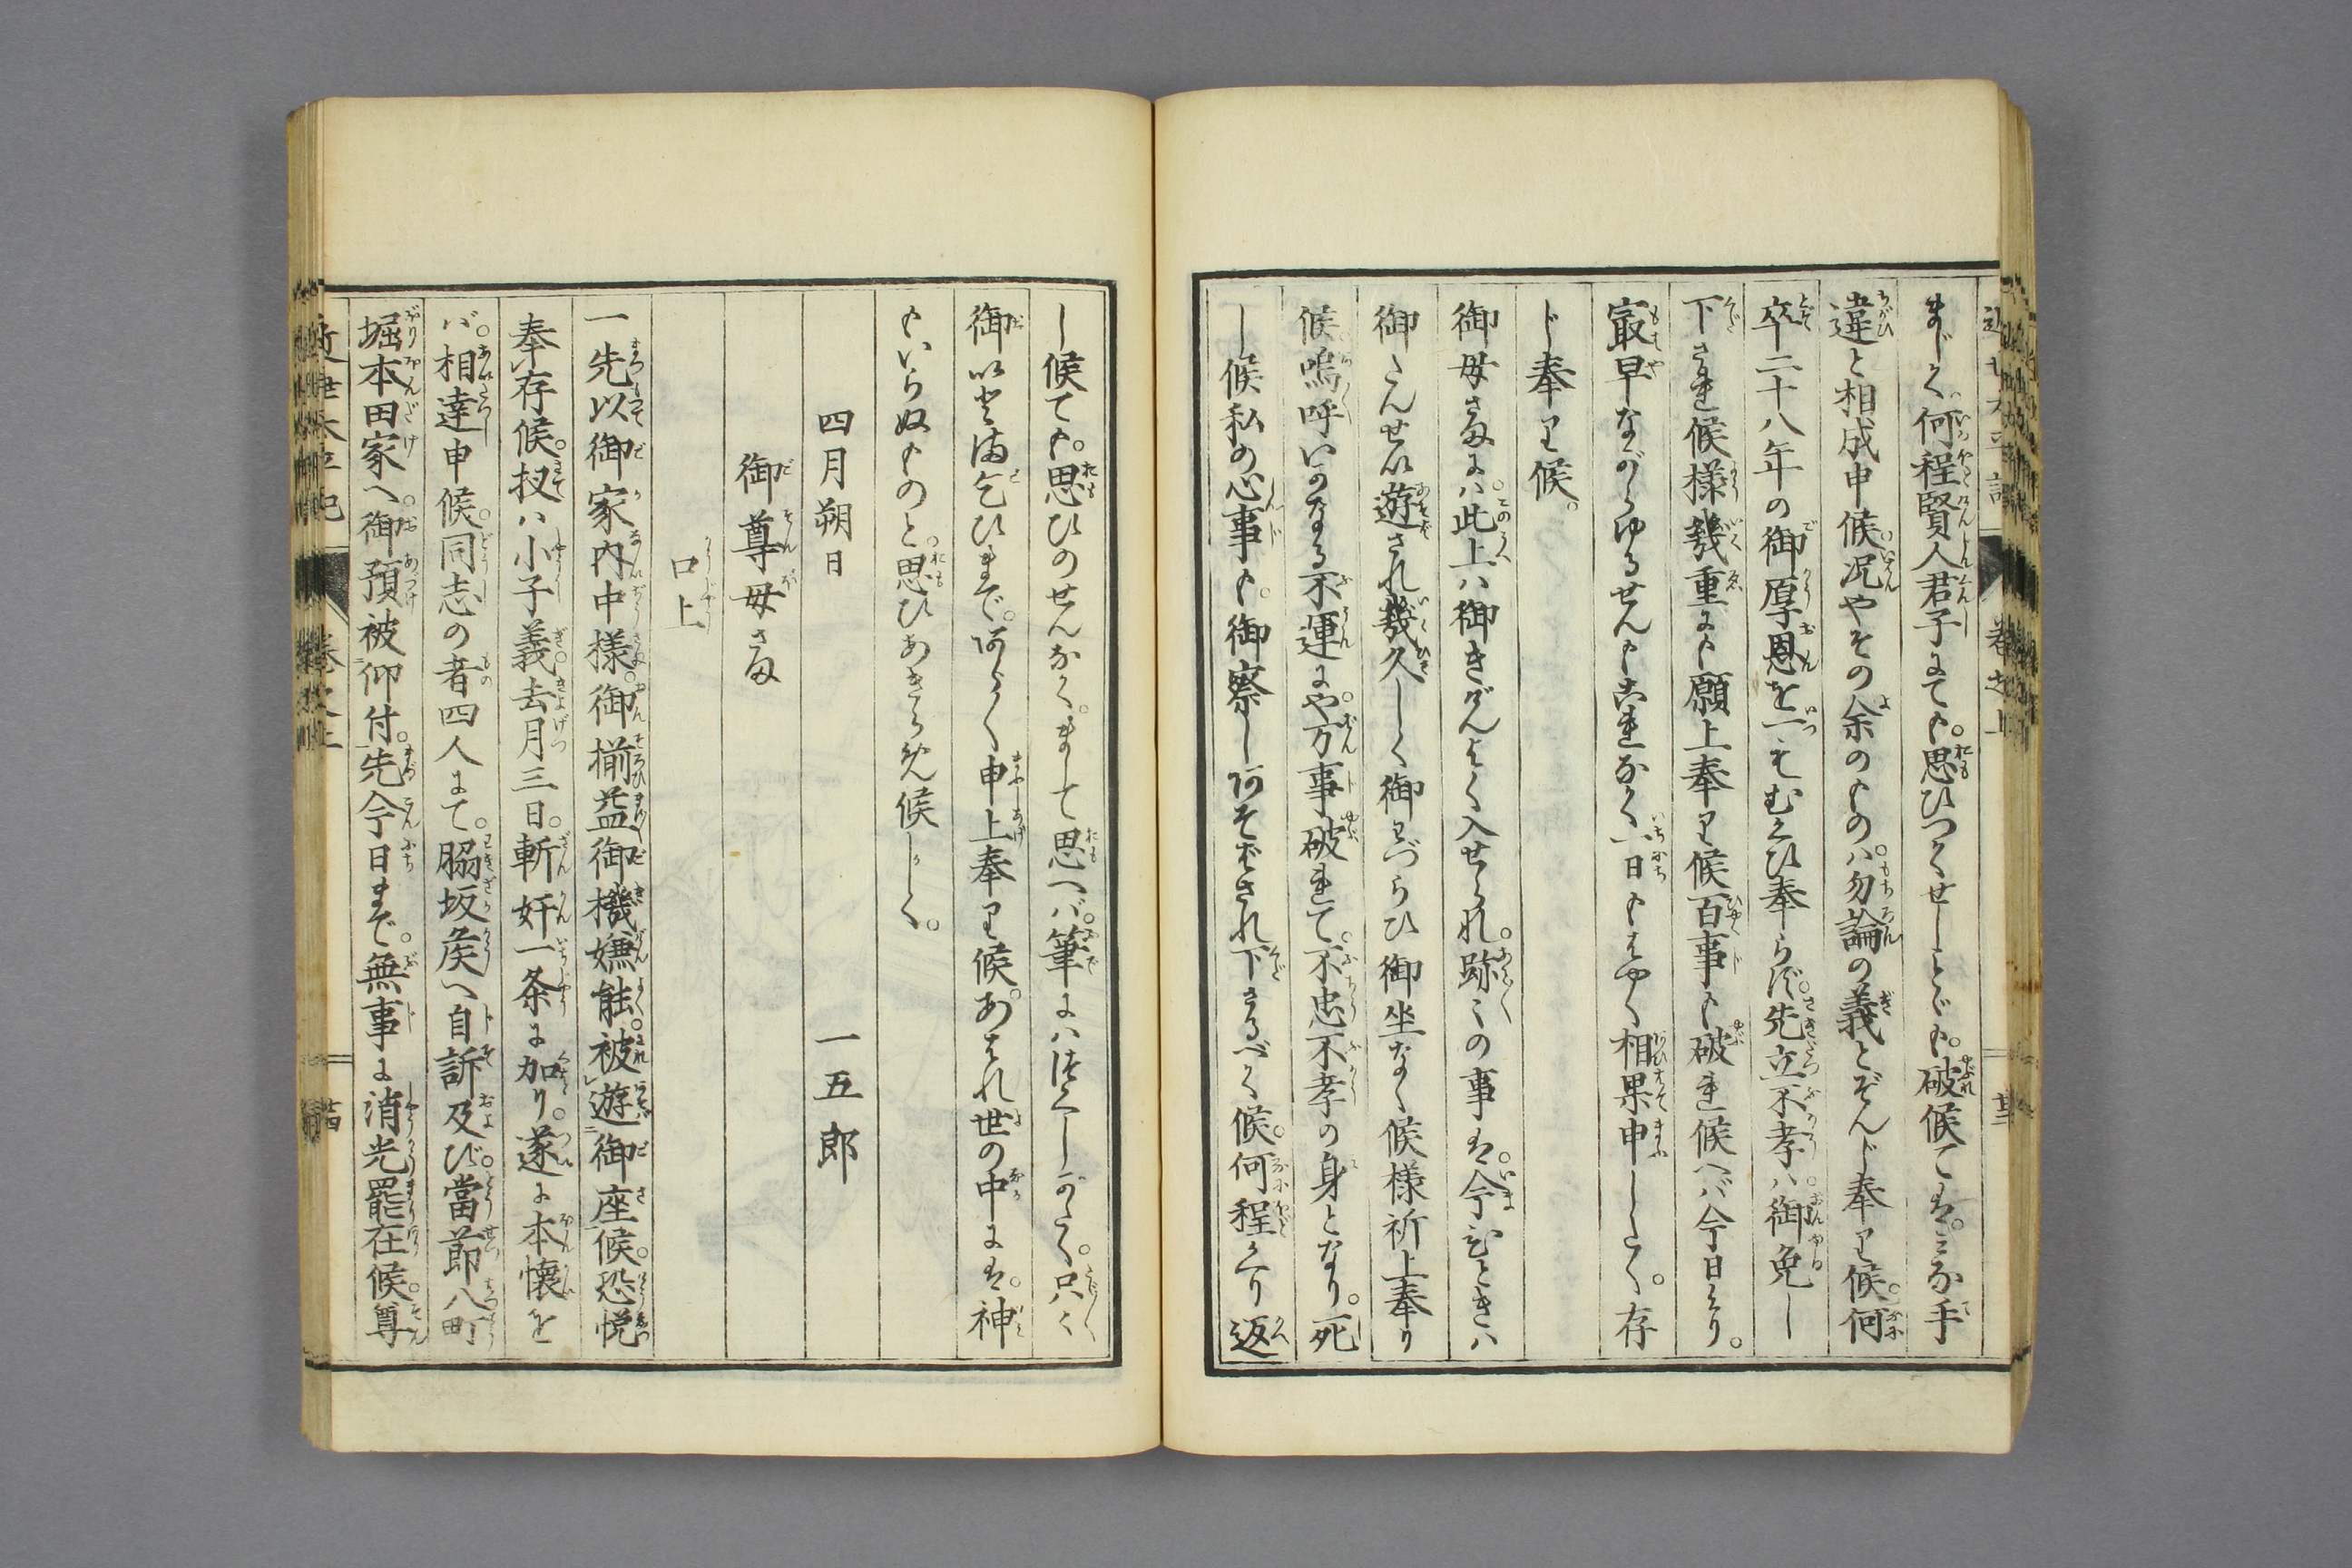 まじく。何程賢人君子にても。思ひつくせしことも。破候ては。みな手
違と相成申候。况やその余のものハ。勿論の義とぞんじ奉り候。何
卒二十八年の御厚恩を一もむくひ奉らず。先立不孝ハ。御免し
下され候様幾重にも願上奉り候百事も破れ候ヘバ今日より。
最早ながらゆるせんもこれなく。一日もはやく相果申したく。存
じ奉り候。
御母さまにハ。此上ハ御きげんよく入せられ。跡〻の事は。今むときハ
御さんせい遊され幾久しく御わづらひ御坐なく候様祈上奉り
候。嗚呼いかなる不運にや。万事破れて。不忠不孝の身となり。死
し候私の心事も。御察し阿そばされ下さるべく候。何程くり返
し候ても。思ひのせんなく。まして思へバ。筆にハ尽くしがたく。只〻
御いとま乞ひまで。阿らく申上奉り候。あはれ世の中には。神
もいらぬものと。思ひあきらめ候かしく。
四月朔日 一五郎
御尊母さま
口上
一先以御家内中様。御揃益御機嫌能。被遊御座候。恐悦
奉存候。扨ハ小子義。去月三日。斬奸一条に加り。遂に本懐を
バ。相達申候。同志の者四人にて。脇坂侯へ自訴及び。當節八町
堀本田家へ。御預被仰付。先今日まで。無事に消光罷在候。尊
近世太平記 巻之上 廿三
近世太平記 巻之上 廿四